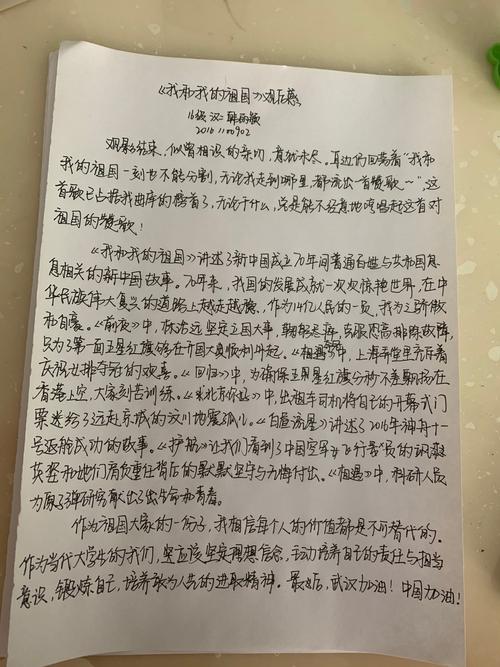 《我和我的祖国》观后感
16级 汉二
2016110902
观影结束，似曾相识的亲切，意犹未尽。耳边仍回荡着“我和
我的祖国一刻也不能分割，无论我走到哪里，都流出一首赞歌～”，这
首歌已占据我曲库的榜首了，无论干什么，总是能不经意地哼唱起这首对
祖国的赞歌！
《我和我的祖国》讲述了新中国成立70年间普通百姓与共和国息
息相关的新中国故事。70年来，我国的发展成就一次次惊艳世界，在中
华民族伟大复兴的道路上越走越稳，作为14亿人民的一员，我为之骄傲
和自豪。《前夜》中，林治远坚定立国大事，克服恐高排除故障，
只为了第一面五星红旗能在开国大典顺利升起。《相遇》中，上海弄堂里齐声
庆祝女排夺冠的欢喜。《回归》中，为确保五星红旗分秒不差飘扬在
香港上空，大家刻苦训练。《北京你好》中，出租车司机将自己的开幕式门
票送给了远赴京城的汶川地震孤儿。《白昼流星》讲述了2016年神舟十一
号返航成功的故事。《护航》让我们看到了中国空军女飞行员的飒爽
英姿和她们肩负重任背后的默默坚守与无悔付出。《相遇》中，科研人员
为原子弹研究献出了生命和青春。
作为祖国大家的一份子，我相信每个人的价值都是不可替代的。
作为当代大学生的我们，更应该坚定理想信念，主动培养自己的责任与担当
意识，锻炼自己，培养敢为人先的进取精神。最后，武汉加油！中国加油！